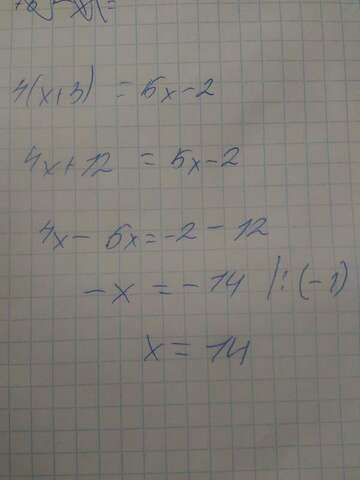 4(x+3) = 5x-2
4x+12 = 5x-2
4x- 5x=-2-12
-x = -14 /:(-1)
x = 14